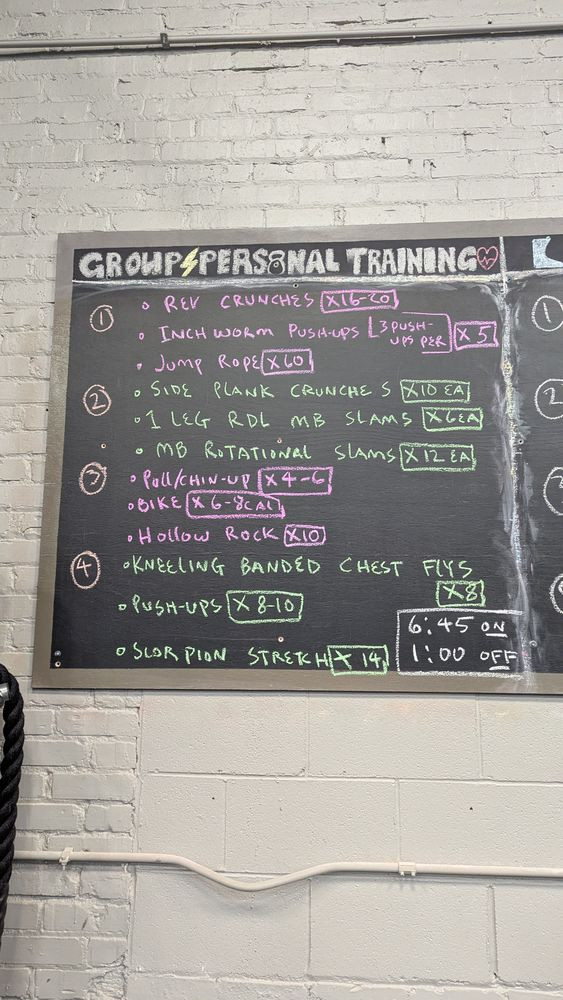 GROUP PERSONAL TRAINING
1
• REV CRUNCHES X16-20
• INCHWORM PUSH-UPS 3 PUSH-UPS PER X 5
• JUMP ROPE X60
2
• SIDE PLANK CRUNCHES X10 EA
• 1 LEG RDL MB SLAMS X6EA
• MB ROTATIONAL SLAMS X12 EA
3
• PULL/CHIN-UP X4-6
• BIKE X6-8CAL
• HOLLOW ROCK X10
4
• KNEELING BANDED CHEST FLYS
X8
• PUSH-UPS X 8-10
• SCORPION STRETCH X 14
6:45 ON
1:00 OFF
1
2
3